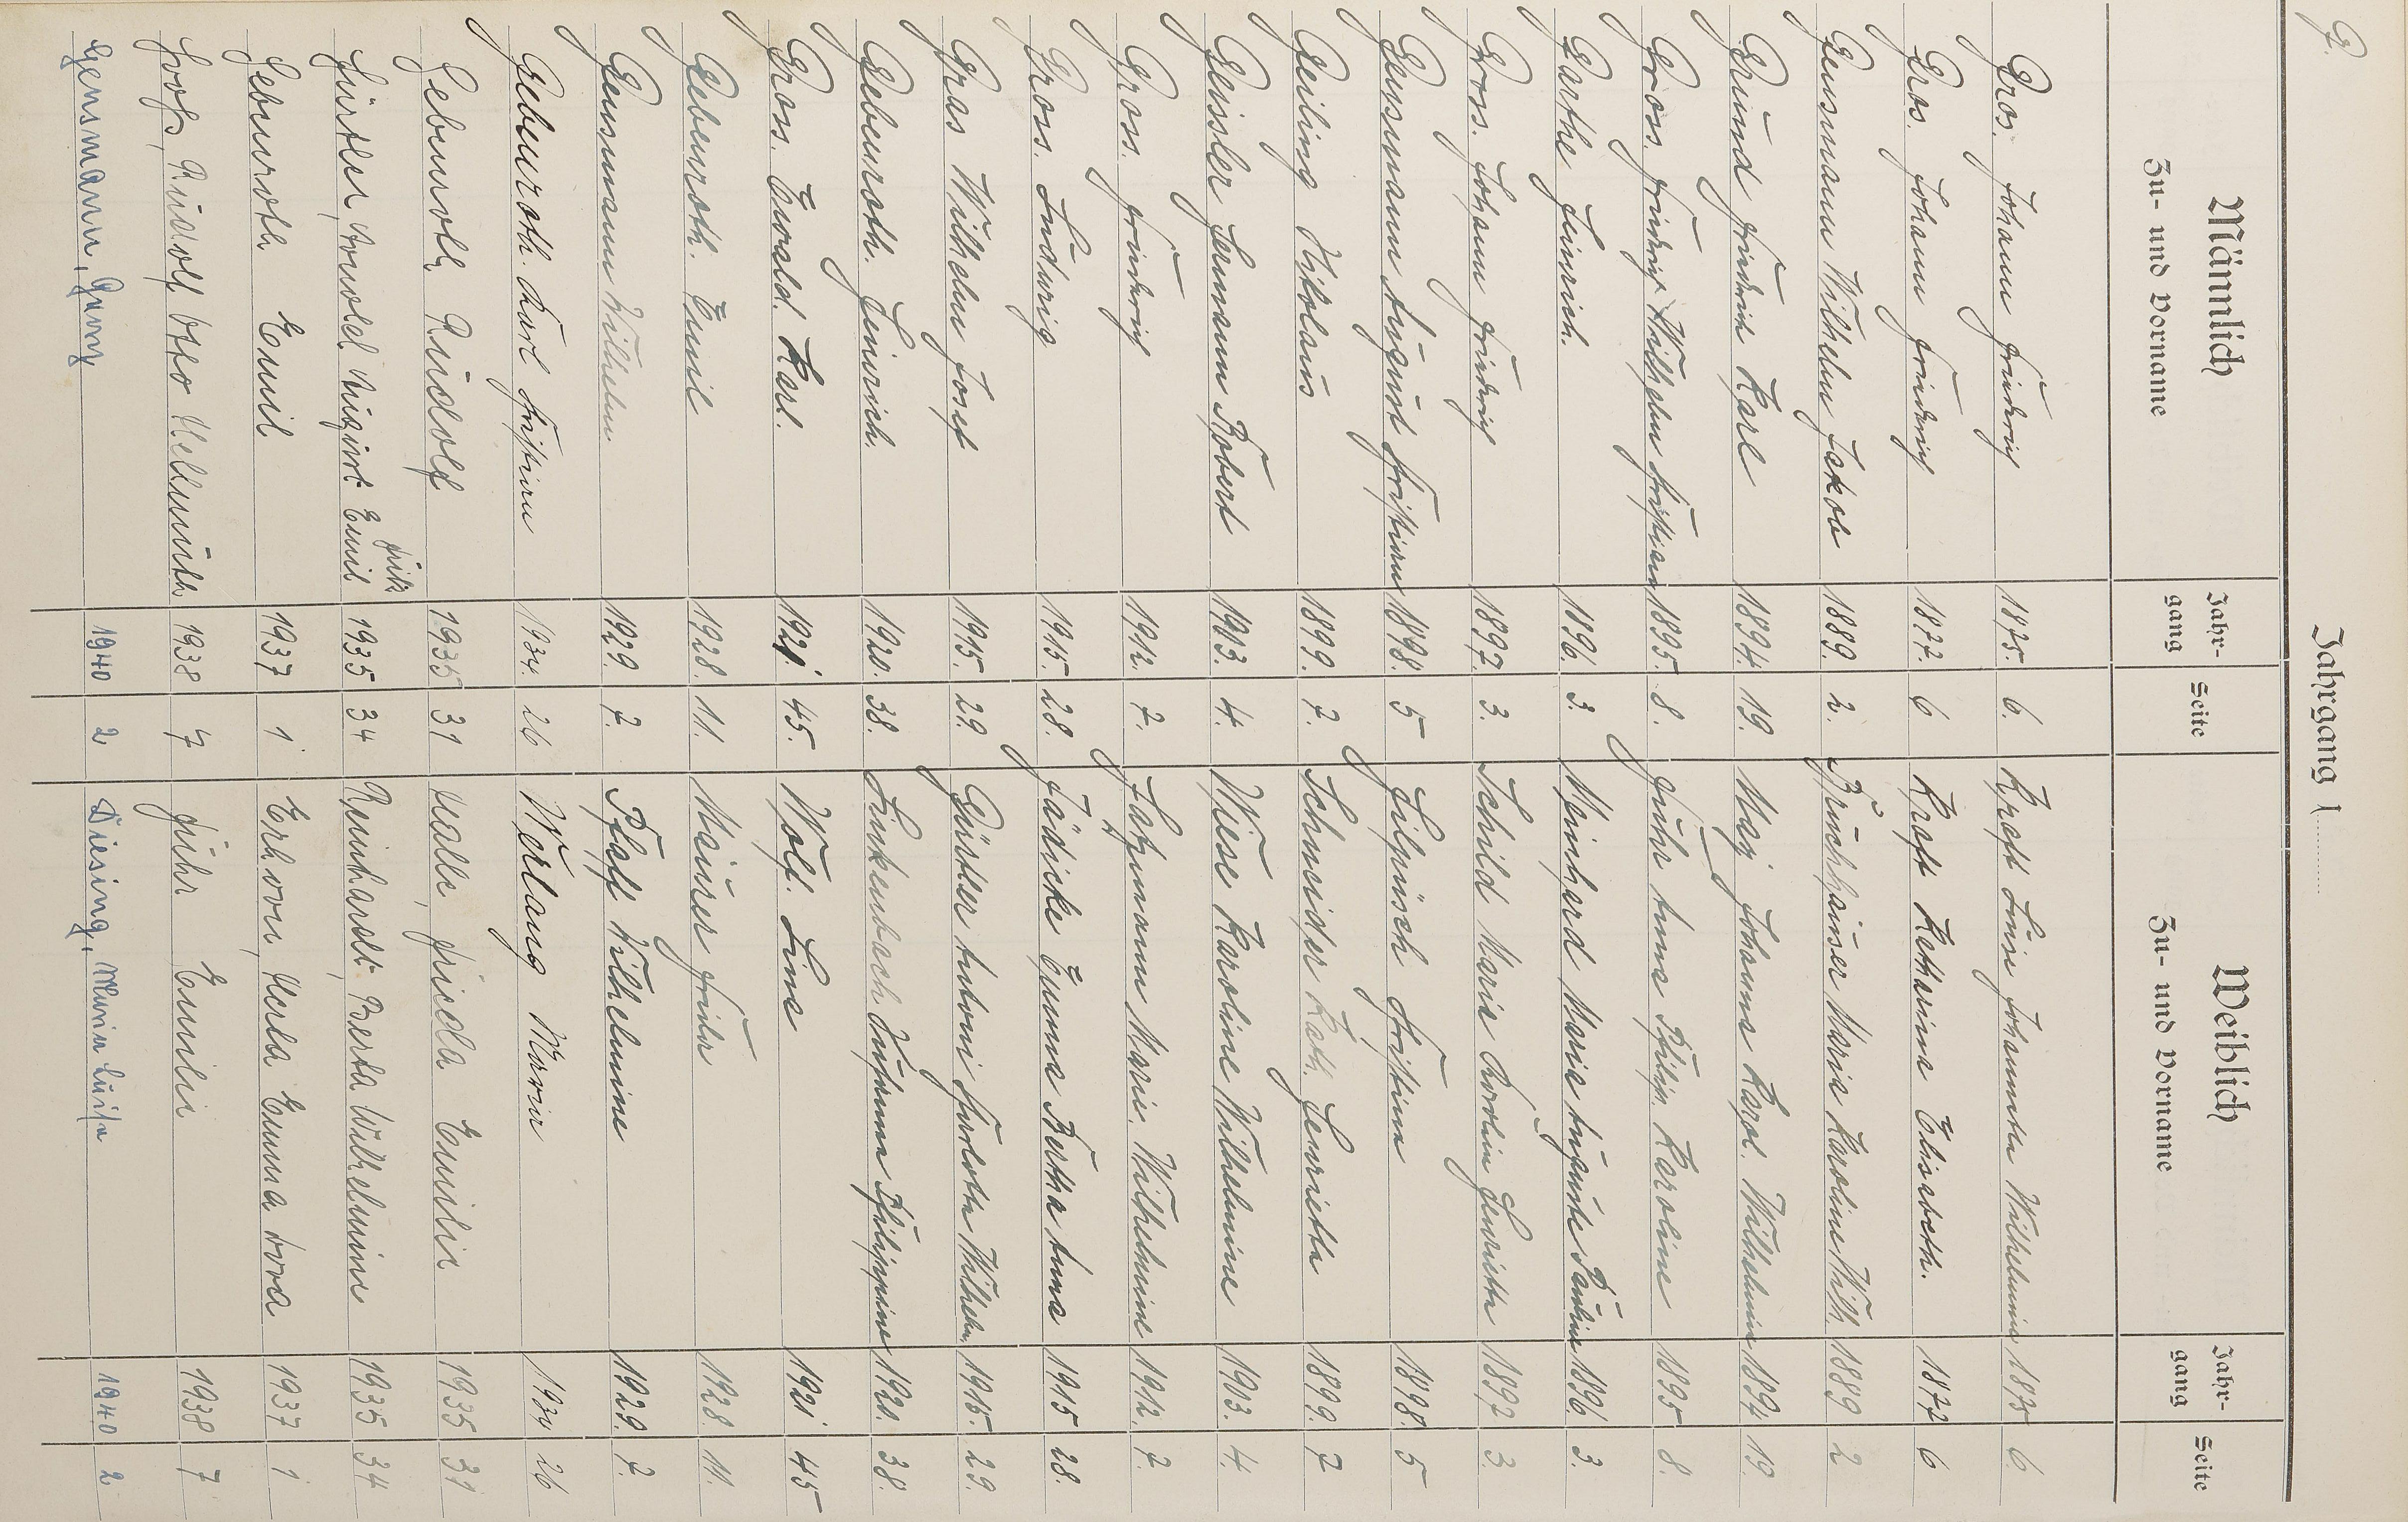 G.
Jahrgang 1
Männlich
Zu- und Vorname
Jahrgang
Seite
Weiblich
Zu- und Vorname
Jahrgang
Seite
Gros. Johann Friedrich 1875. 6. Kraft Luise Johannette Wilhelmine 1875 6.
Gros. Johann Friedrich 1877. 6 Kraft Katharina Elisabeth. 1877 6
Gensmann Wilhelm Jakob 1889. 2. Bruchhäuser Maria Karoline Wilh. 1889 2
Gründ Friedrich Karl 1894. 19. May Johanna Karol. Wilhelmine 1894 19.
Gross. Friedrich Wilhelm Christian 1895. 8. Führ Anna Philip. Karoline 1895 8.
Garthe Heinrich. 1896. 3. Meinhard Maria Auguste Pauline 1896. 3.
Gross. Johann Friedrich 1897. 3. Schild Maria Karolin Henriette 1897 3.
Gensmann August Christian 1898. 5 Hilpüsch Christine 1898. 5
Geiling Nikolaus 1899. 7. Schneider Kath. Henriette 1899. 7
Geissler Hermann Robert 1903. 4. Wiese Karoline Wilhelmine 1903. 4.
Gross. Friedrich 1912. 7. Hatzmann Marie. Wilhelmine 1912. 7.
Gross. Ludwig 1915. 28. Jädicke Emma Bertha Anna 1915 28.
Gras Wilhelm Josef 1915. 29. Gürtler Antoni Charlotte Wilhelm. 1915. 29.
Gebenroth. Heinrich. 1920. 38. Finkenbach Philippine 1920. 38.
Gross. Ewald. Karl. 1921. 45. Wolf. Lina 1921 45
Gebenroth. Emil 1928. 11. Mäurer Frieda 1928. 11.
Gensmann Wilhelm 1929. 7. Pfaff Wilhelmine 1929. 7.
Gebenroth. Karl Christian 1934. 26 Werlang Maria 1934 26
Gebenroth, Rudolf 1935 31 Kalb, Frieda Emilie 1935 31
Gürtler, Arnold August Emil Fritz 1935 34 Reinhardt, Berta Wilhelmine 1935 34
Gebenroth Emil 1937 1 Erkorn, Herta Emma Dora 1937 1
Goos, Rudolf Otto Hellmuth 1938 7 Führ Emilie 1938 7
Gensmann, Georg 1940 2 Diesing, Maria Luise 1940 2